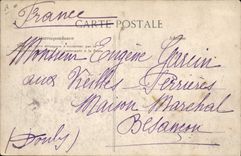 France
CARTE POSTALE
Correspondance
Monsieur Eugène
aux Vieilles Perrières
Maison Maréchal
Besançon
(Doubs)